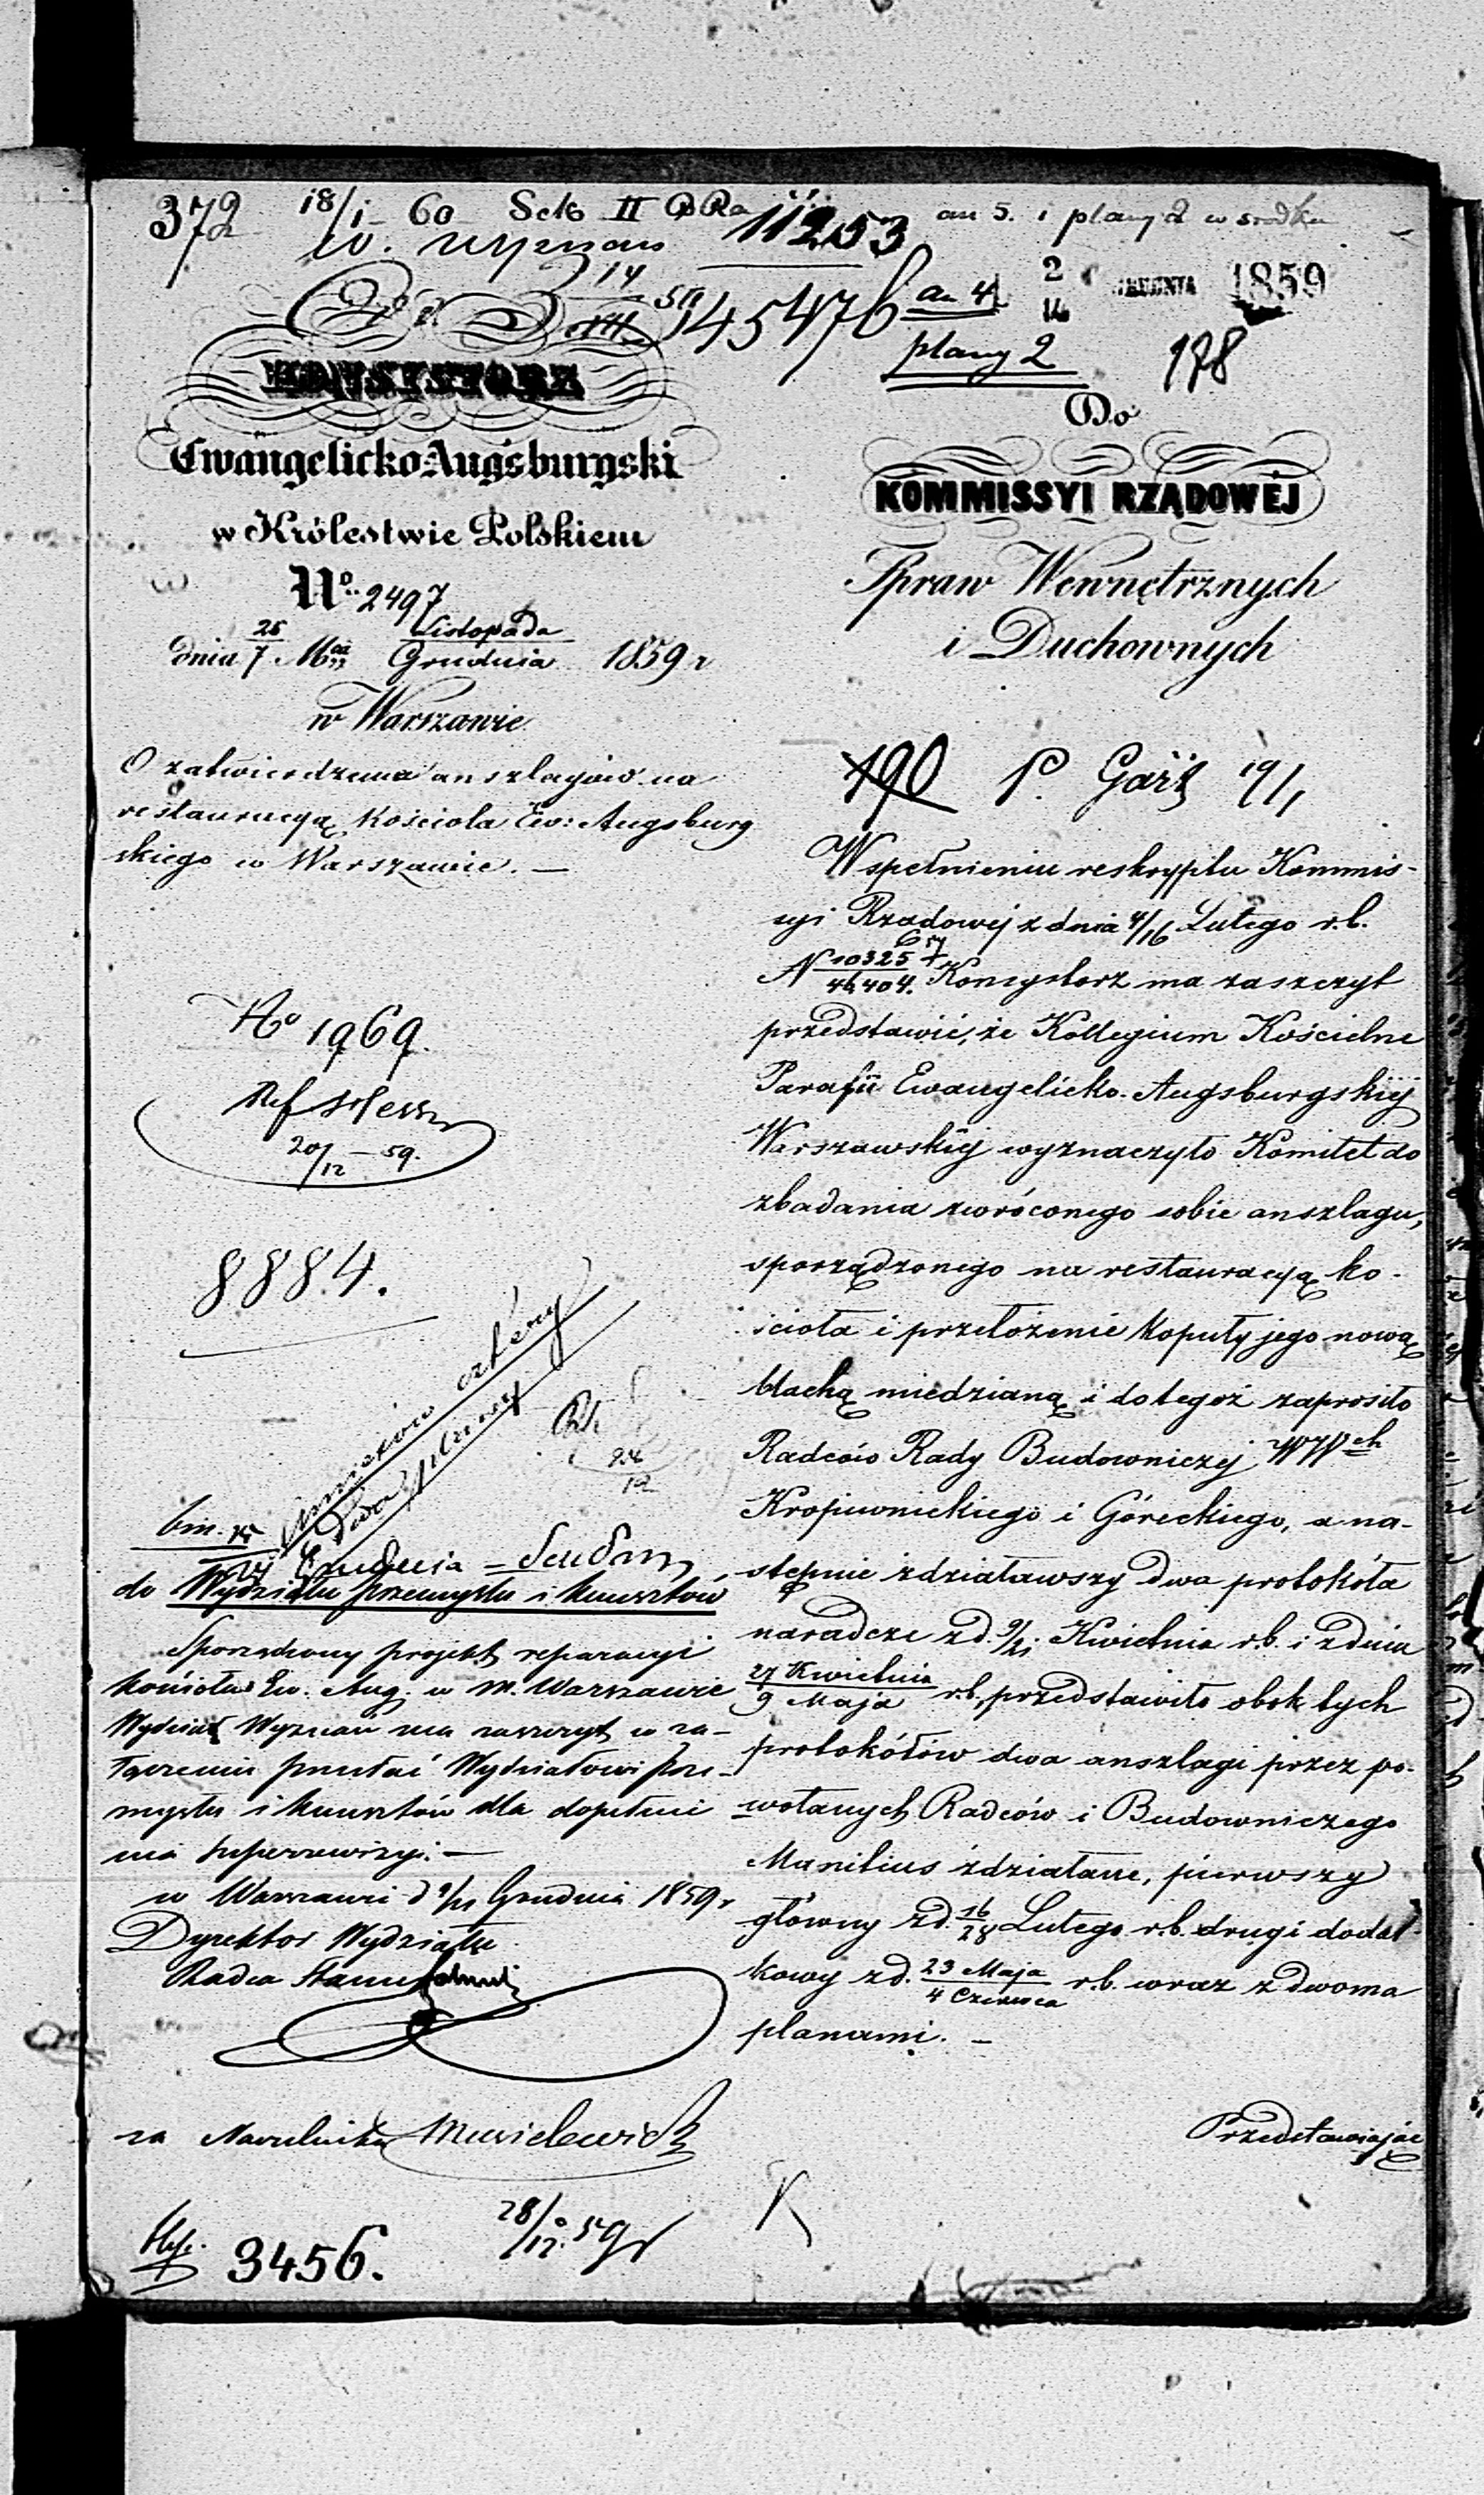 372 18/1 60 Sek II 11253 an 5. i plany 2 w środku
w. wyznań
14 545476 an 4 2 GRUDNIA 1859
14
plany 2 178
KONSYSTORZ
Ewangelicko-Augsburgski
w Królestwie Polskiem
No. 2497
dnia 25/7 Mca Listopada/Grudnia 1859 r
w Warszawie
O zatwierdzenie anszlagów na
restauracyą Kościoła Ew: Augsburg
skiego w Warszawie. —
No 1969.
Ref
20/12 – 59.
8884.
24
12
dwa plany
Grudnia
do Wydziału przemysłu i kunsztów
Sporządzony projekt reparacyi
kościoła Ew. Aug. w M. Warszawie
Wydział Wyznań ma zaszczyt w za-
łączeniu przesłać Wydziałowi prze-
mysłu i kunsztów dla dopełnie
nia superrewizyi. —
w Warszawie d 9/21 Grudnia 1859 r
Dyrektor Wydziału
Radca Stanu
za Naczelnika
28/12 59 r
3456.
Do
KOMMISSYI RZĄDOWÉJ
Spraw Wewnętrznych
i Duchownych
190 P. 19/1
W spełnieniu reskryptu Kommis-
syi Rządowéj z dnia 4/16 Lutego r.b.
N 10325/46404. Konsystorz ma zaszczyt
przedstawić, że Kollegium Kościelne
Parafii Ewangelicko-Augsburgskiéj
Warszawskiéj wyznaczyło Komitet do
zbadania zwróconego sobie anszlagu,
sporządzonego na restauracyą ko-
ścioła i przełożenie kopuły jego nową
blachą miedzianą i do tegoż zaprosiło
Radców Rady Budowniczéj WWch
Kropiwnickiego i Góreckiego, a na-
stępnie zdziaławszy dwa protokóła
naradcze z d. 9/21 Kwietnia r.b. i z dnia
27 Kwietnia/9 Maja r.b. przedstawiło obok tych
protokółów dwa anszlagi przez po-
wołanych Radców i Budowniczego
Manitius zdziałane, pierwszy
główny z d. 16/28 Lutego r.b. drugi dodat-
kowy z d. 23 Maja/4 Czerwca r.b. wraz z dwoma
planami. —
Przedstawiając